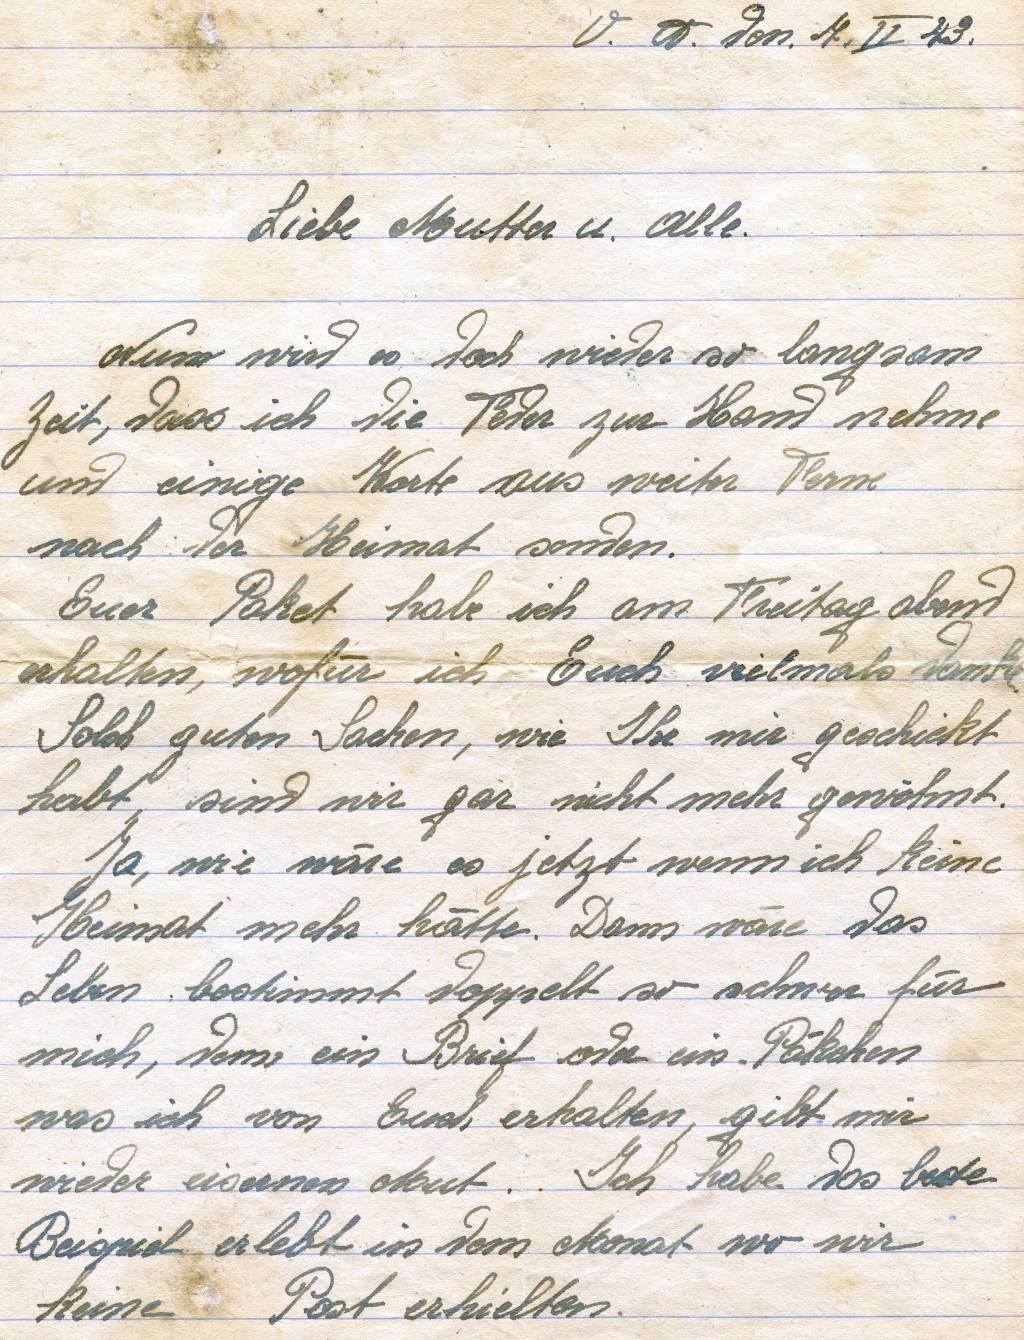 den. 4. II 43.
Liebe Mutter u. Alle.
Nun wird es doch wieder so langsam
Zeit, dass ich die Feder zur Hand nehme
und einige Worte aus weiter Ferne
nach der Heimat senden.
Euer Paket habe ich am Freitag abend
erhalten, wofür ich Euch vielmals danke.
Solch guten Sachen, wie Ihr mir geschickt
habt, sind wir gar nicht mehr gewöhnt.
Ja, wie wäre es jetzt wenn ich keine
Heimat mehr hätte. Dann wäre das
Leben bestimmt doppelt so schwer für
mich, denn ein Brief oder ein Päkchen
was ich von Euch erhalten, gibt mir
wieder eisernen Mut. Ich habe das beste
Beispiel erlebt in dem Monat wo wir
keine Post erhielten.